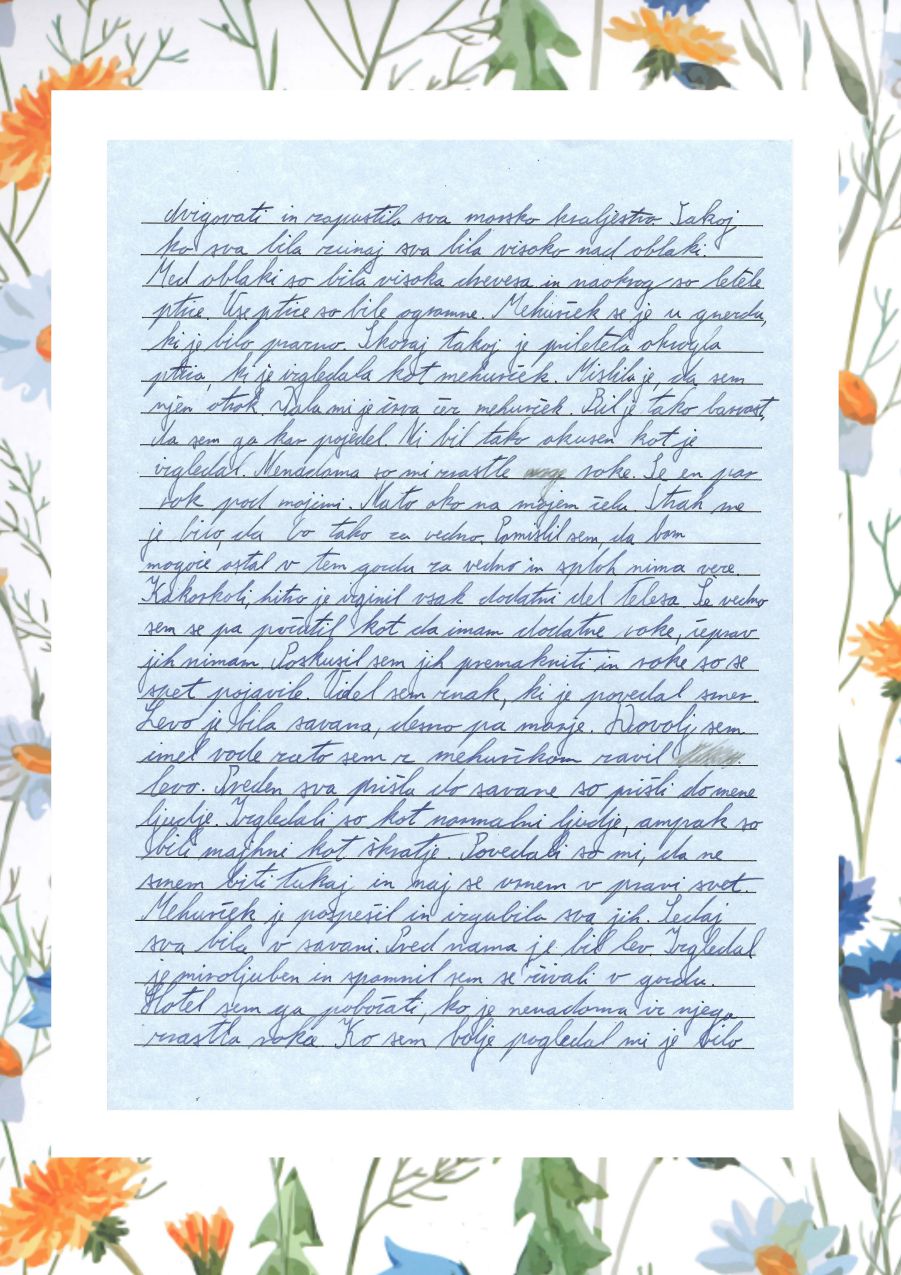 dvigovati in zapustila sva morsko kraljestvo. Takoj
ko sva bila zunaj sva bila visoko nad oblaki.
Med oblaki so bila visoka drevesa in naokrog so letele
ptice. Vse ptice so bile ogromne. Mehurček se je v gnezdu,
ki je bilo prazno. Skoraj takoj je priletela okrogla
ptica, ki je izgledala kot mehurček. Mislila je, da sem
njen otrok. Dala mi je črva čez mehurček. Bil je tako barvast,
da sem ga kar pojedel. Ni bil tako okusen kot je
izgledal. Nenadoma so mi zrastle roke. Še en par
rok pod mojimi. Nato oko na mojem čelu. Strah me
je bilo, da bo tako za vedno. Pomislil sem, da bom
mogoče ostal v tem gozdu za vedno in sploh nima veze.
Kakorkoli, hitro je izginil vsak dodatni del telesa. Še vedno
sem se pa počutil kot da imam dodatne roke, čeprav
jih nimam. Poskusil sem jih premakniti in roke so se
spet pojavile. Videl sem znak, ki je povedal smer.
Levo je bila savana, desno pa morje. Dovolj sem
imel vode zato sem z mehurčkom zavil
levo. Preden sva prišla do savane so prišli do mene
ljudje. Izgledali so kot normalni ljudje, ampak so
bili majhni kot škratje. Povedali so mi, da ne
smem biti tukaj in naj se vrnem v pravi svet.
Mehurček je pospešil in izgubila sva jih. Sedaj
sva bila v savani. Pred nama je bil lev. Izgledal
je miroljuben in spomnil sem se živali v gozdu.
Hotel sem ga pobožati, ko je nenadoma iz njega
zrastla roka. Ko sem bolje pogledal mi je bilo